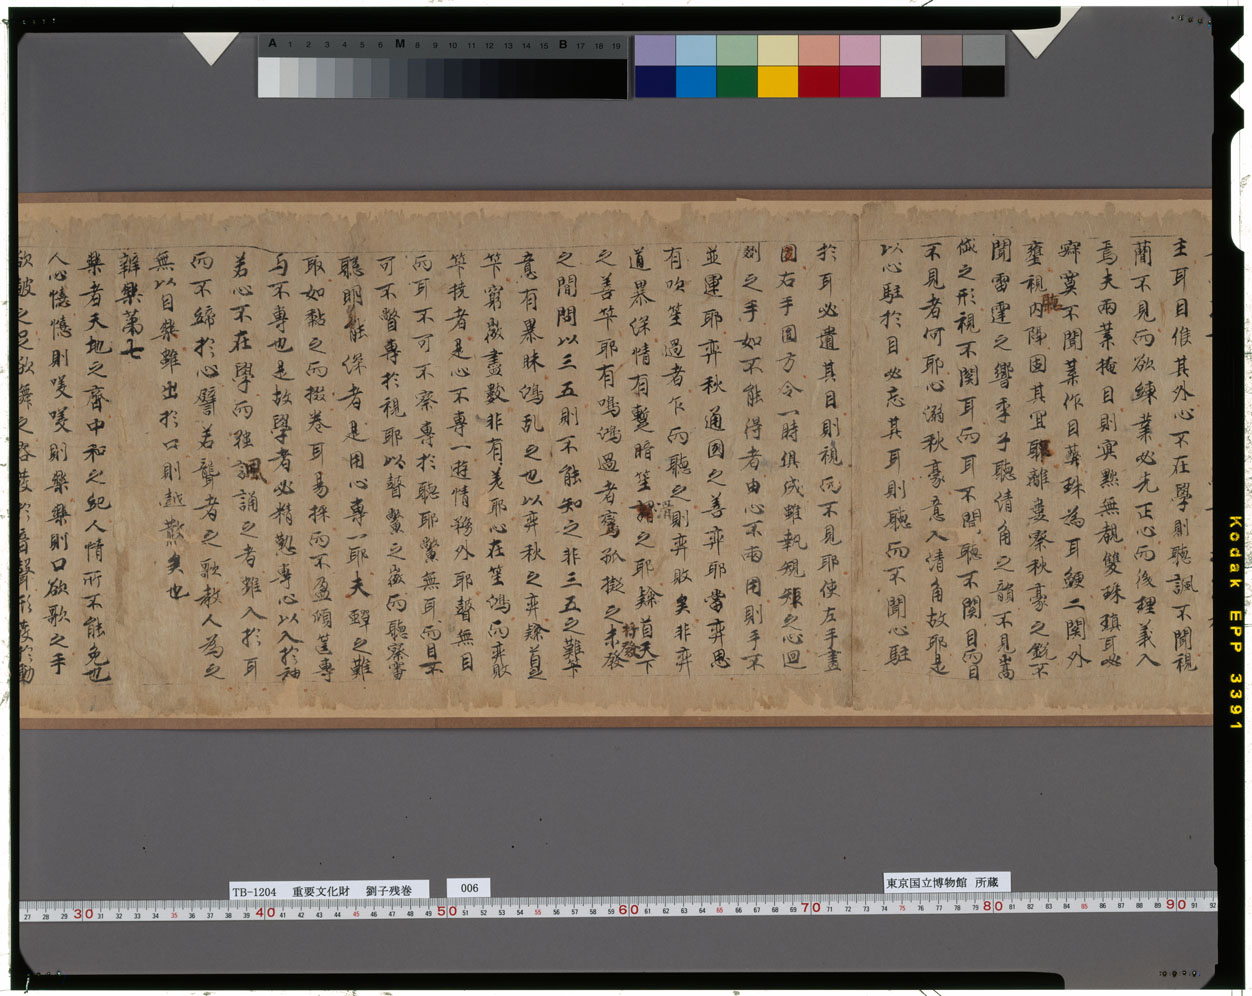 主耳目候其外心不在學則聽諷不聞視
蘭不見而欲練業必先正心而後理義入
焉夫兩葉掩目則冥默無覩雙珠瑱耳必
寂寞不聞葉作目蔽珠為耳鯁二關外
壅視內隔固其宜聽離婁察秋豪之鋭不
聞雷霆之響季子聽清角之韻不見嵩
岱之形視不關耳而耳不聞聽不關目而目
不見者何耶心溺秋豪意入清角故耶是
以心駐於目必忘其耳則聽而不聞心駐
於耳必遺其目則視而不見耶使左手畫
圓右手圖方令一時俱成雖執規矩之心迴
劂之手如不能得者由心不兩用則手不
並運耶弈秋通國之善弈耶當弈思
有吹笙過者乍而聽之則弈敗矣非弈
道暴保情有蹔暗笙滑之耶隸首天下
之善竿耶有鳴鴻過者彎弧擬之未發
之間問以三五則不能知之非三五之難竿
意有暴昧鴻乱之也以弈秋之弈隸首
竿窮微盡數非有差耶心在笙鴻而弈敗
竿撓者是心不專一遊情務外耶瞽無目
而耳不可不察專於聽耶鱉無耳而目不
可不瞥專於視耶以瞽鱉之微而聽察審
聽明能保者是用心專一耶夫蟬之難
取如黏之而掇卷耳易採而不盈傾筐專
与不專也是故學者必精懃專心以入於神
若心不在學而強諷誦之者雖入於耳
而不締於心譬若聾者之歌教人為之
無以自樂雖出於口則越散矣也
辯樂苐七
樂者天地之齊中和之紀人情所不能免也
人心憘憘則咲咲則樂樂則口欲歌之手
欲皷之足欲舞之容發於音聲形發於動
TB-1204 重要文化財 劉子残巻
006
東京国立博物館 所蔵
Kodak EPP 3391